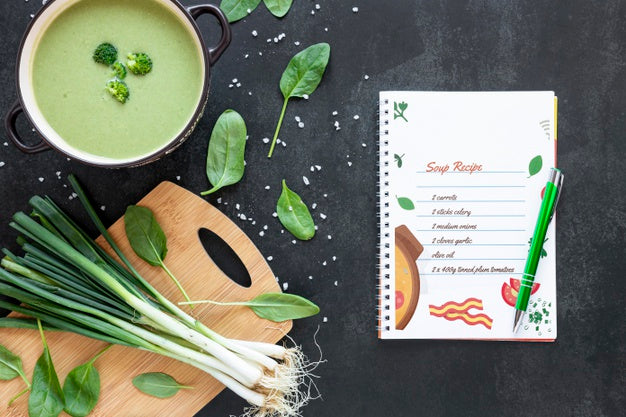 Soup Recipe
2 carrots
2 sticks celery
2 medium onions
2 cloves garlic
olive oil
2 x 400g tinned plum tomatoes